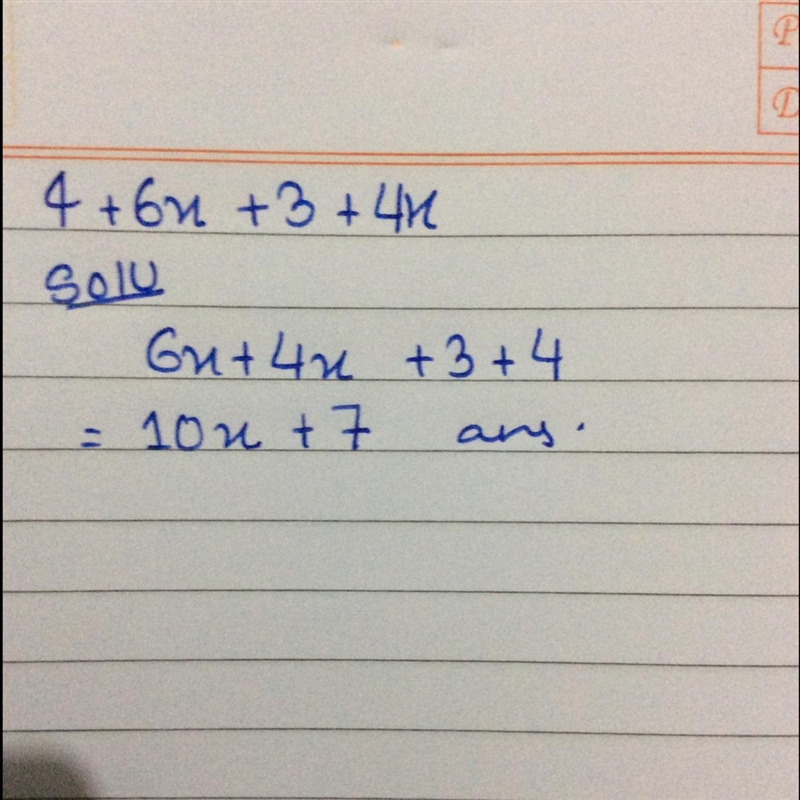 4 + 6x + 3 + 4x
Solu
6x + 4x + 3 + 4
= 10x + 7 ans.
P
D